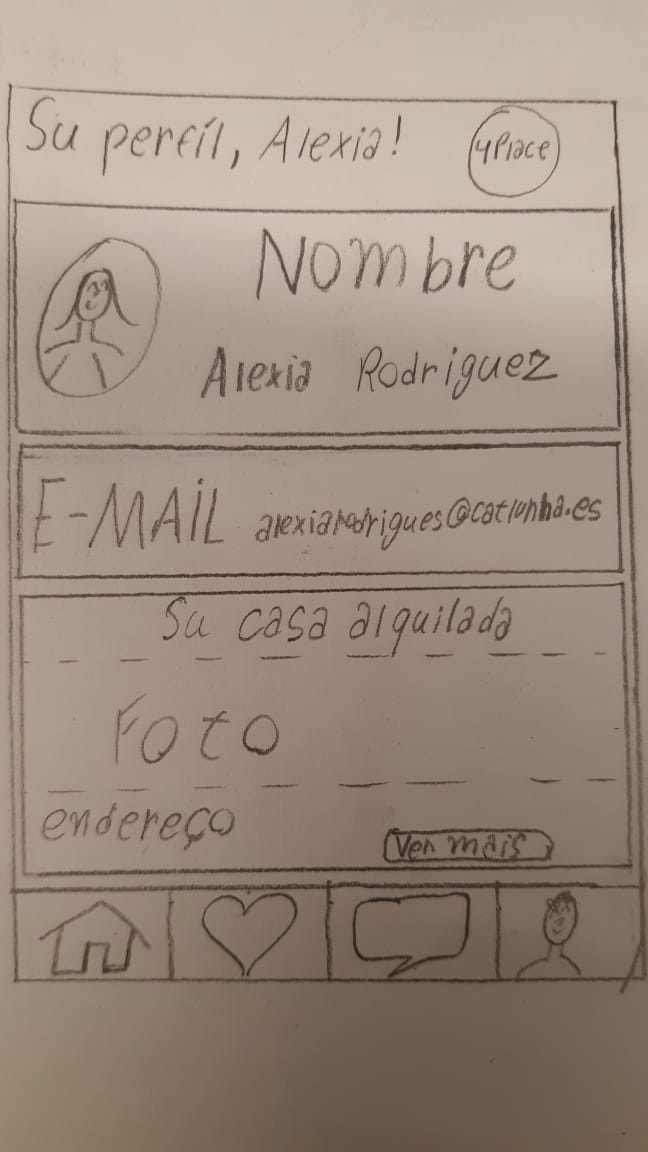 Su perfíl, Alexia!
4Place
Nombre
Alexia Rodriguez
E-MAIL alexiarodrigues@catlunha.es
Su casa alquilada
Foto
endereço
Ver mais